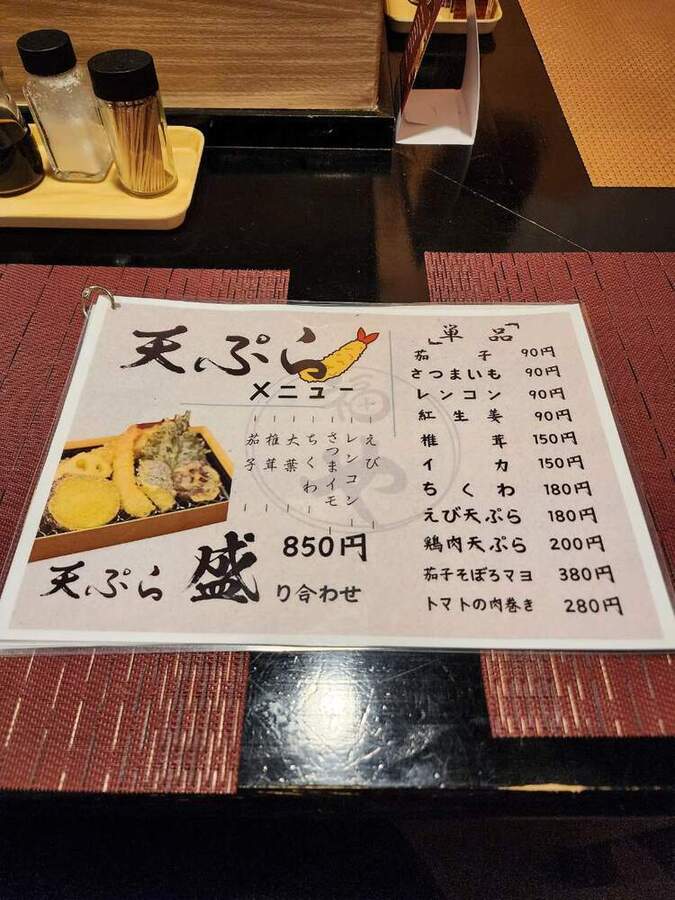 天ぷら
メニュー
えび
レンコン
さつまイモ
ちくわ
大葉
椎茸
茄子
850円
天ぷら盛り合わせ
「単品」
茄子 90円
さつまいも 90円
レンコン 90円
紅生姜 90円
椎茸 150円
イカ 150円
ちくわ 180円
えび天ぷら 180円
鶏肉天ぷら 200円
茄子そぼろマヨ 380円
トマトの肉巻き 280円
福
や